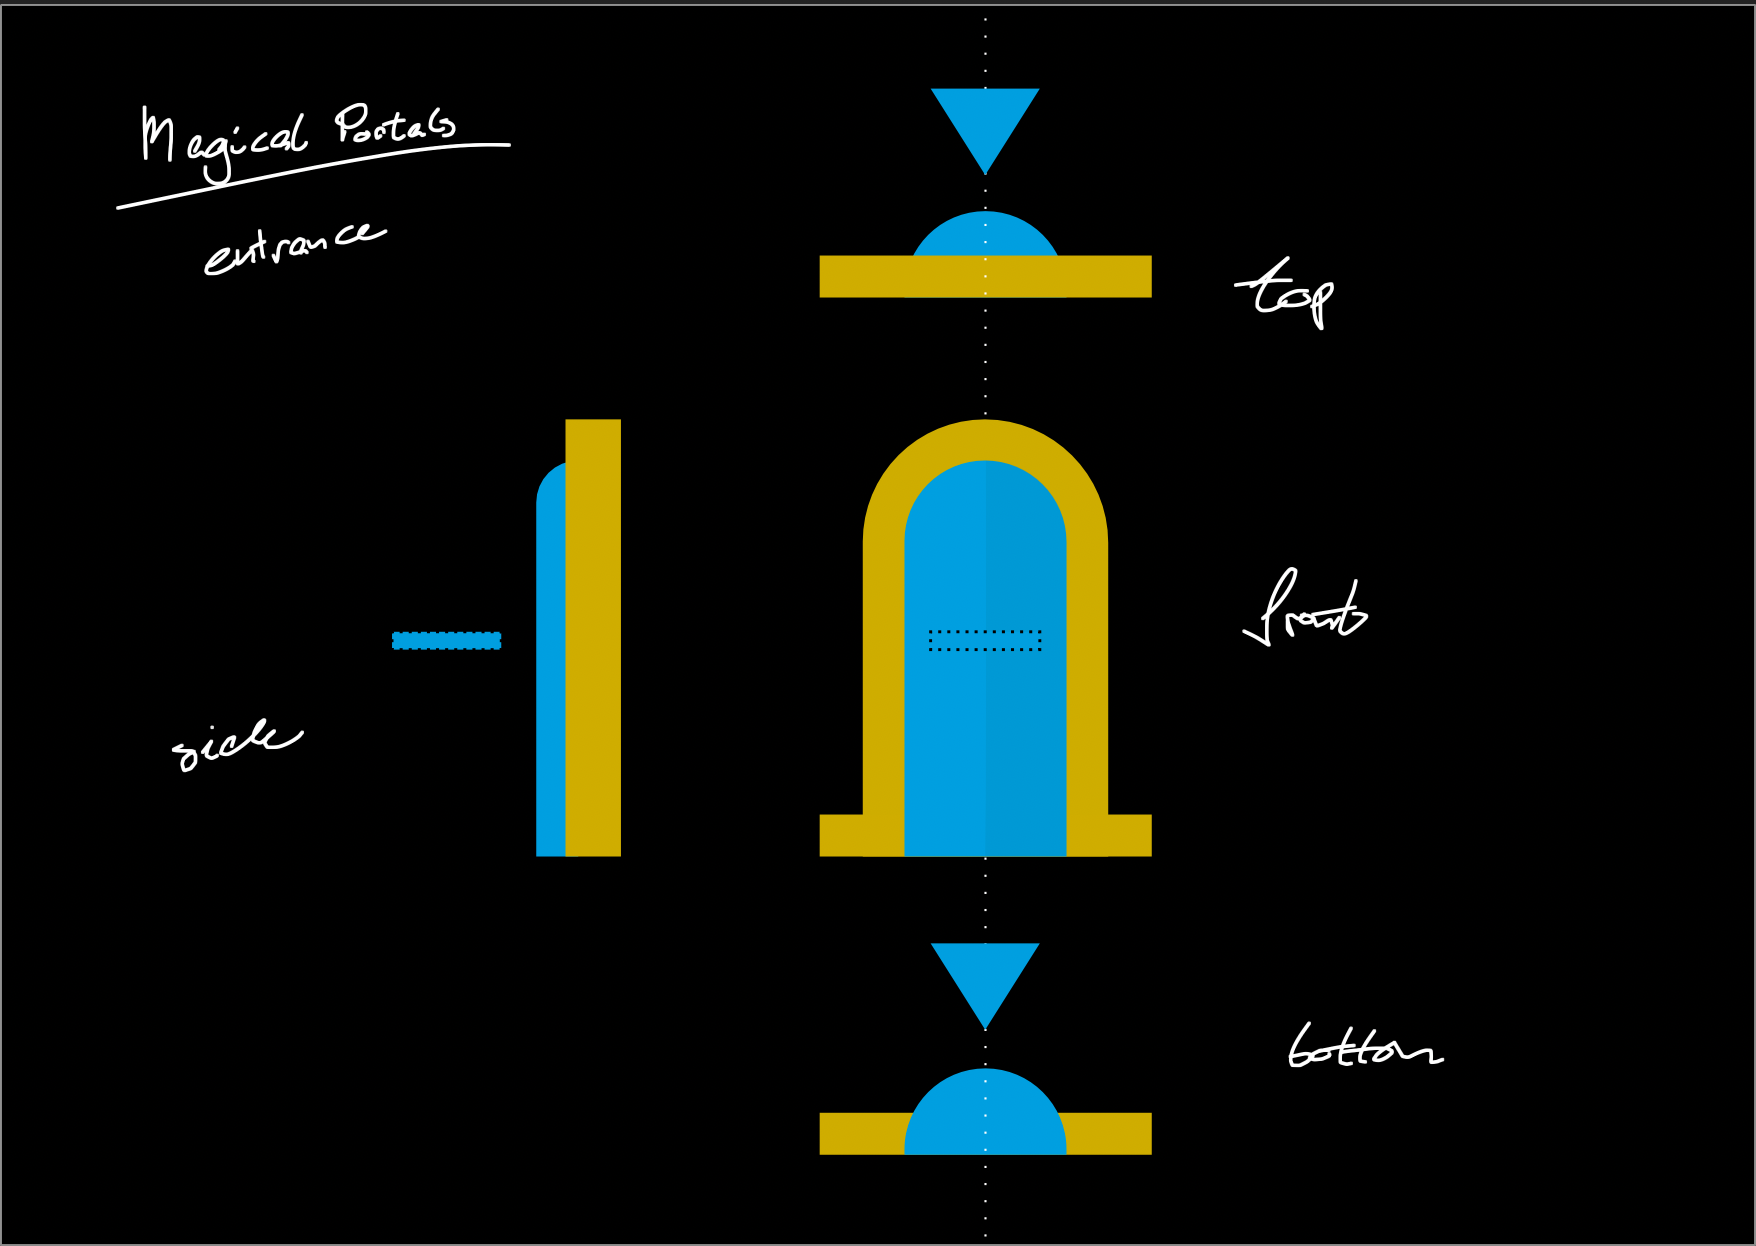 Magical Portals
entrance
top
front
side
bottom